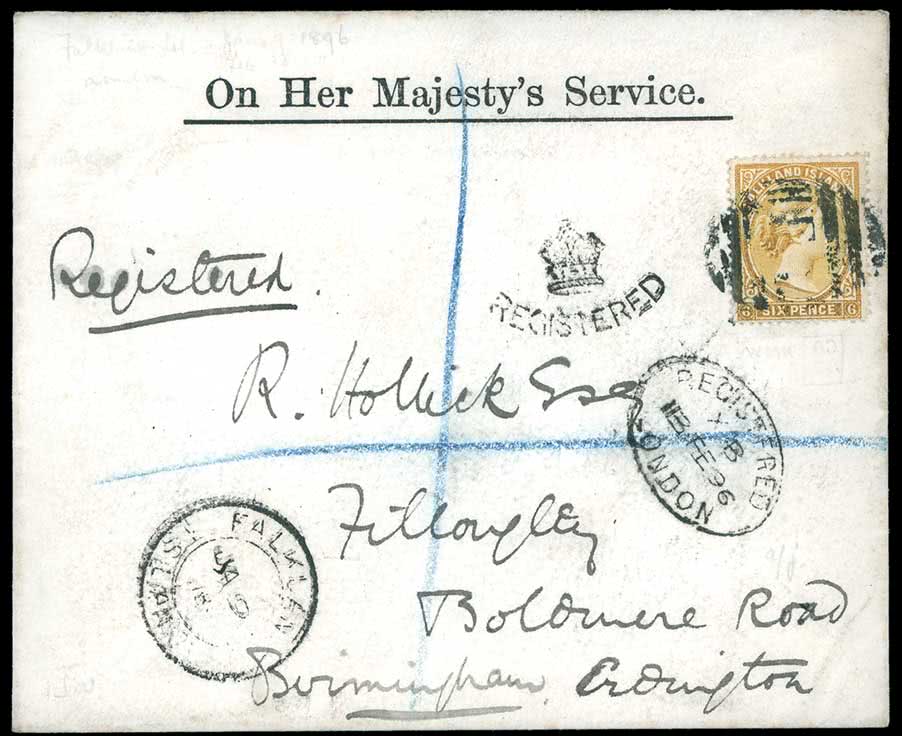 1896
On Her Majesty's Service.
FALKLAND ISLANDS
SIX PENCE
6 6
Registered.
REGISTERED
R. Hollick Esq
REGISTERED
FE 96
LONDON
Fillongley
FALKLAND ISLANDS
JA
Boldmere Road
Birmingham Erdington